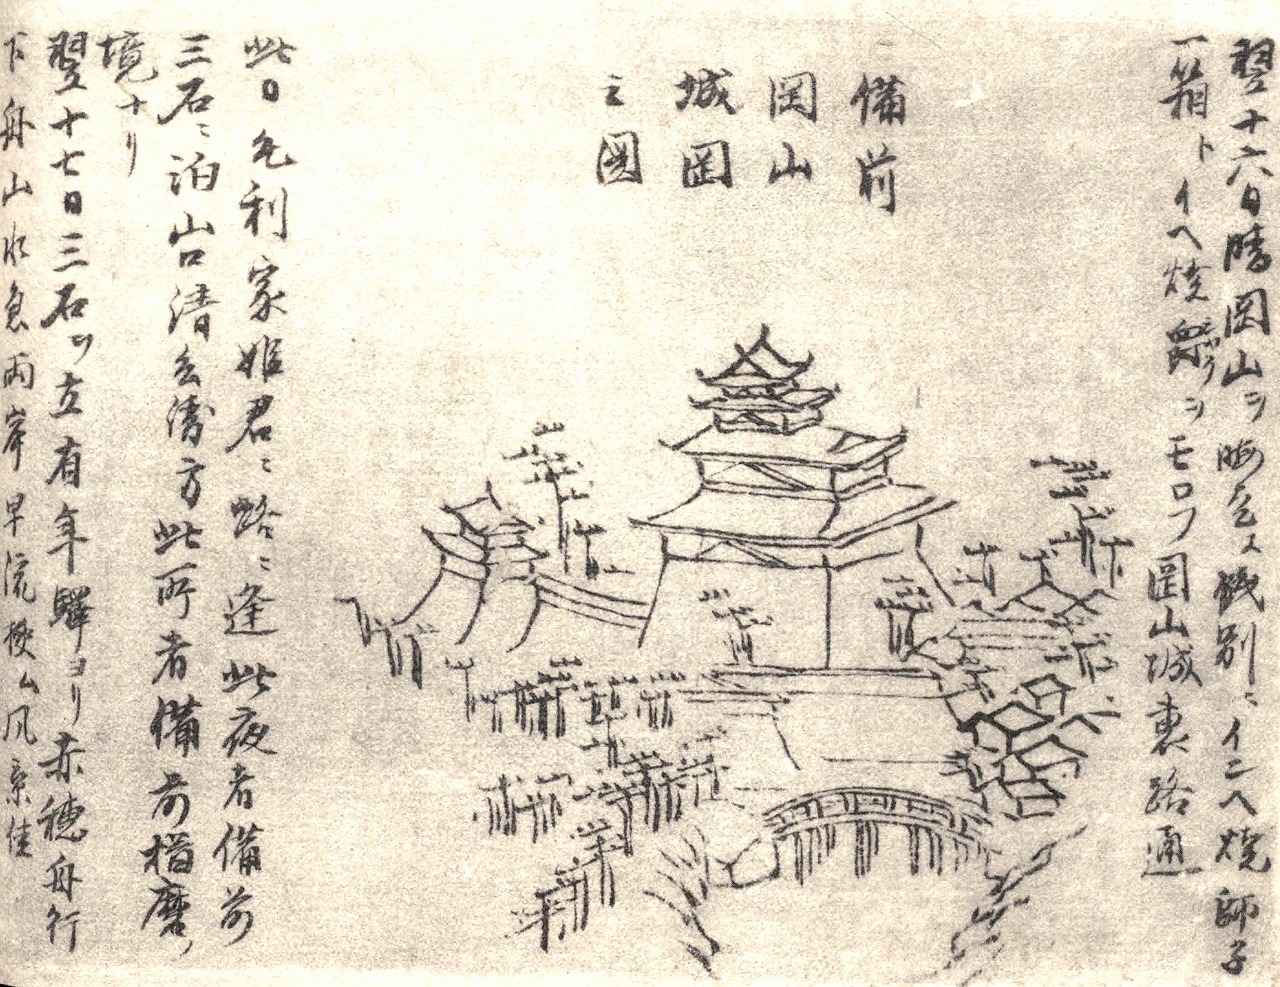 翌十六日晴岡山ヲ 餞別ニイニヘ焼師子
一箱トイヘ焼 ヲモロフ岡山城裏路通
備前
岡山
城図
之図
此日毛利家姫君ニ路ニ逢此夜者備前
三石ニ泊山台清 方此所者備前播磨ノ
境ナリ
翌十七日三石ヲ立有年駅ヨリ赤穂舟行
下舟山水急両岸早流 風景佳